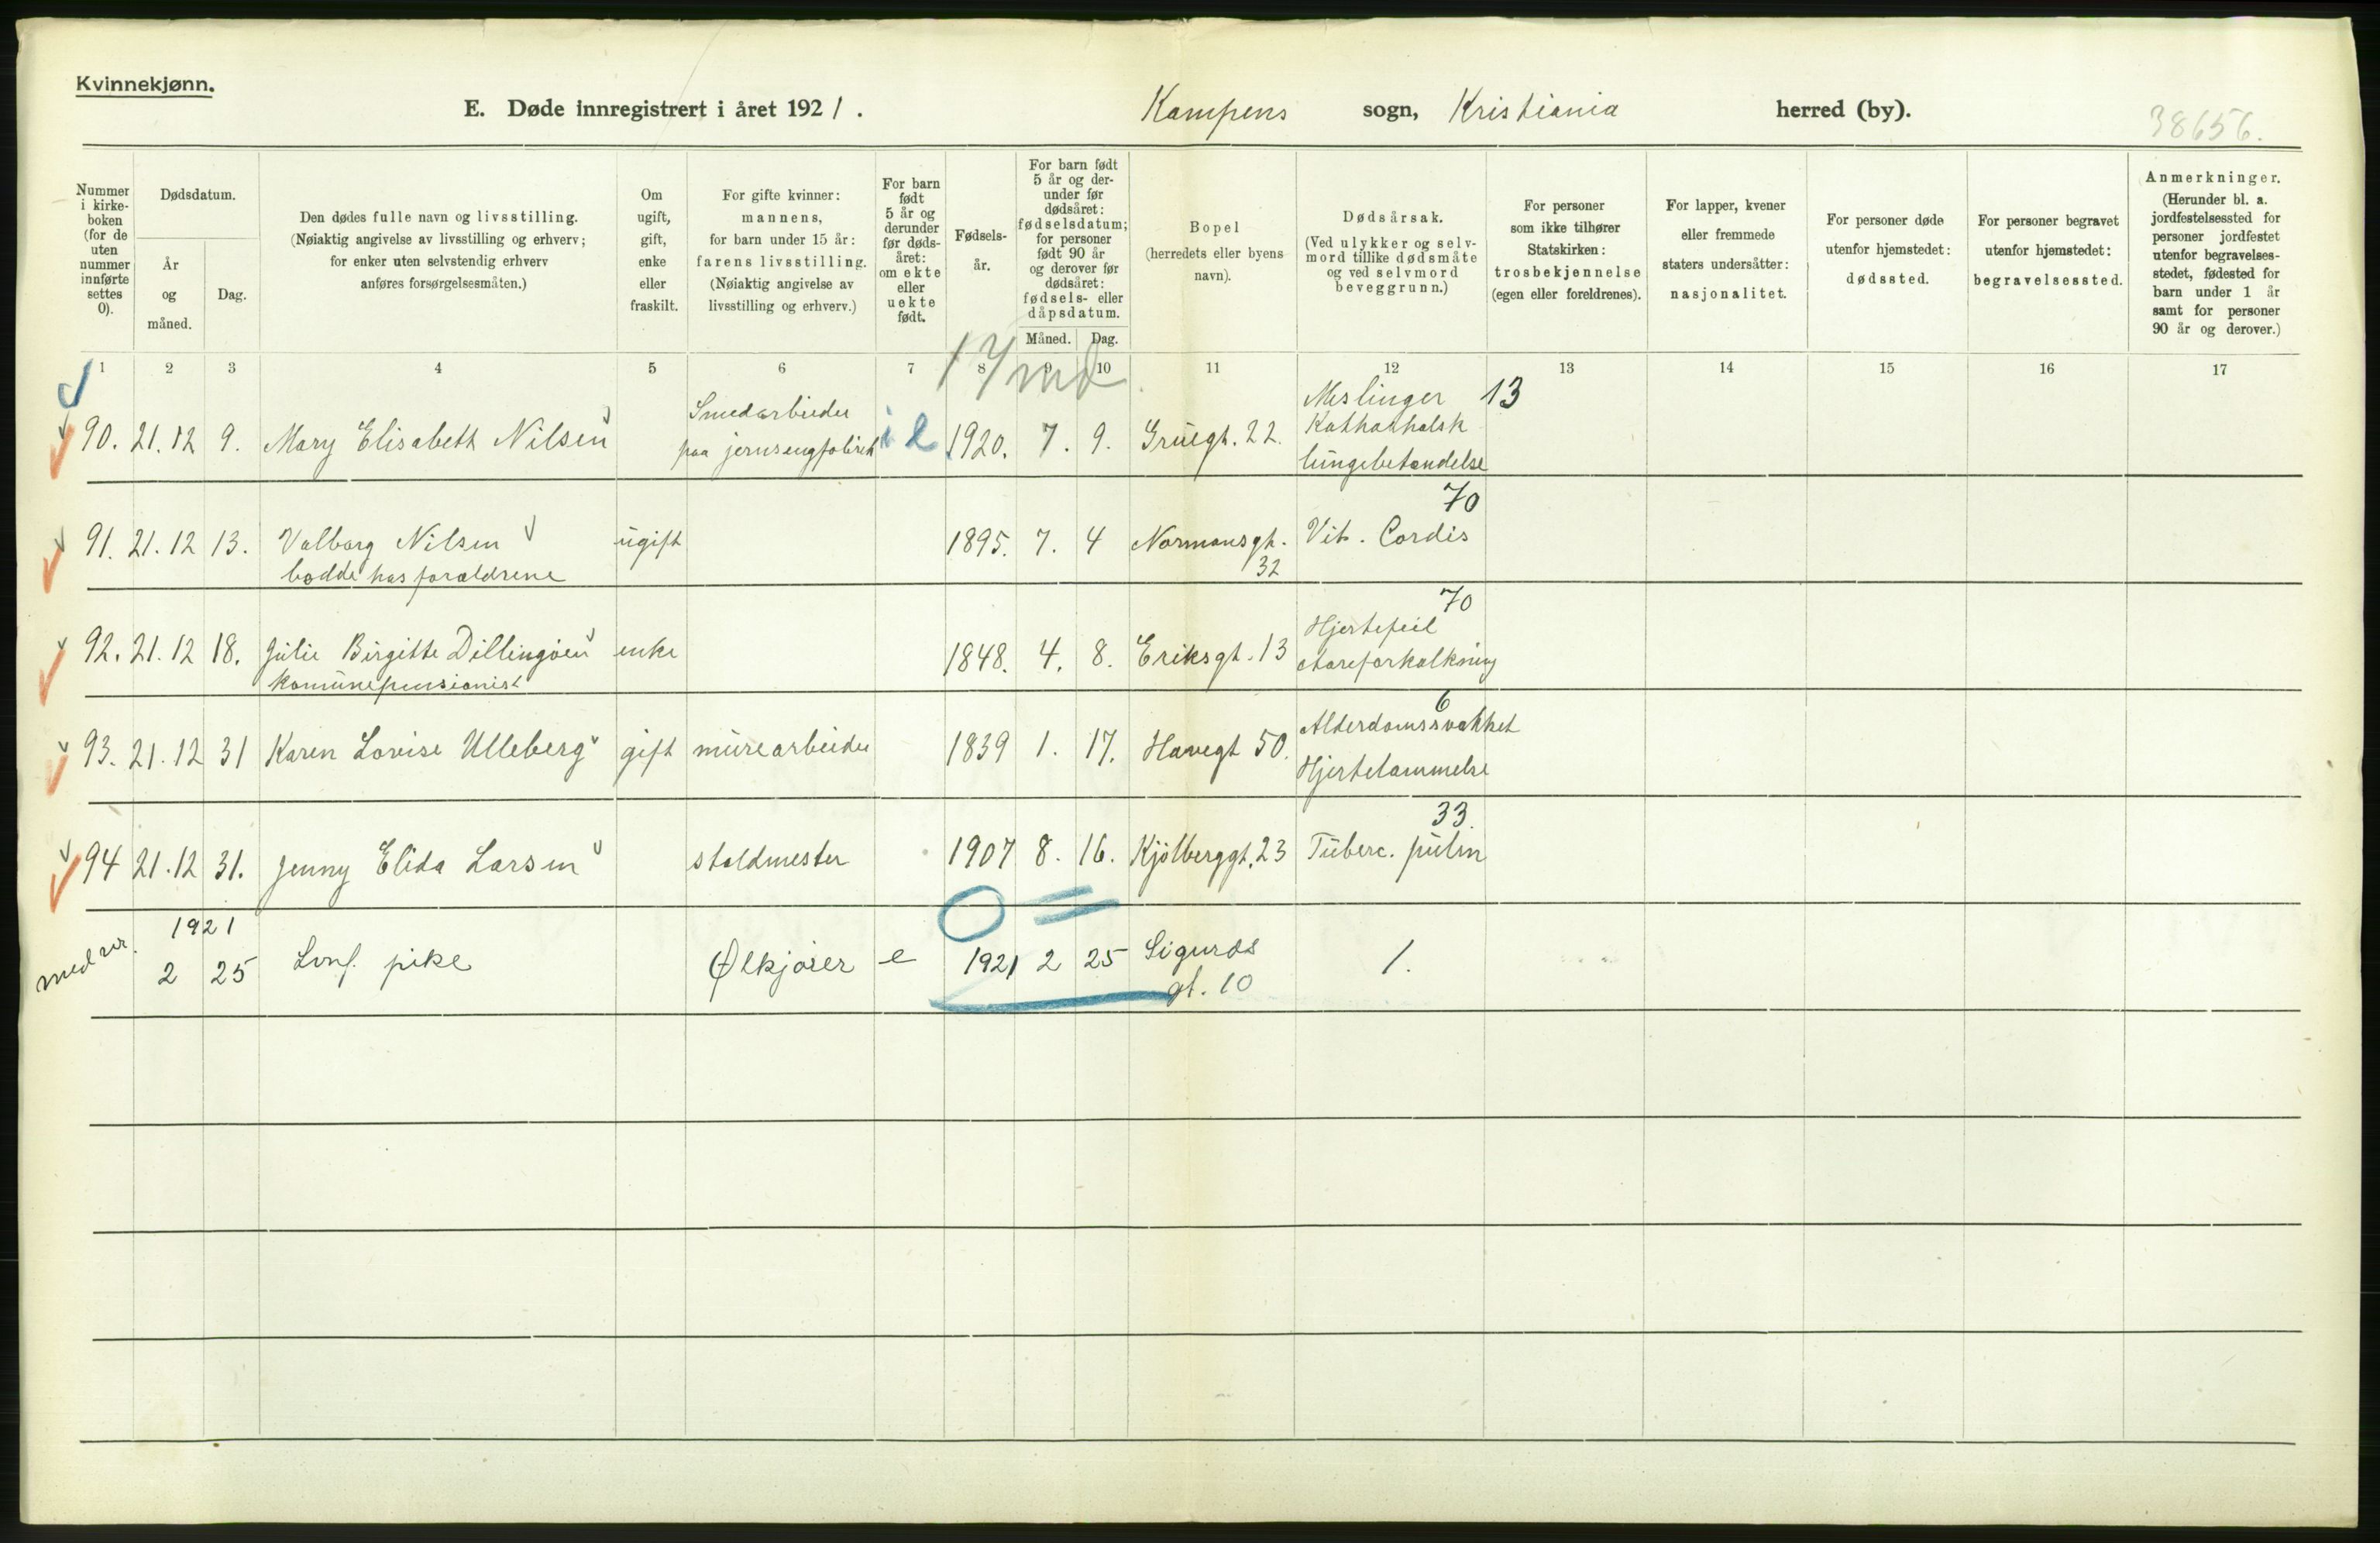 Kvinnekjønn.
E. Døde innregistrert i året 1921. Kampens sogn, Kristiania herred (by). 38656.
Nummer i kirke-boken (for de uten nummer innførte settes 0).
Dødsdatum.
År og måned.
Dag.
Den dødes fulle navn og livsstilling.
(Nøiaktig angivelse av livsstilling og erhverv;
for enker uten selvstendig erhverv
anføres forsørgelsesmåten.)
Om ugift, gift, enke eller fraskilt.
For gifte kvinner:
mannens,
for barn under 15 år:
farens livsstilling.
(Nøiaktig angivelse av
livsstilling og erhverv.)
For barn født 5 år og derunder før døds-året: om ekte eller uekte født.
Fødsels-år.
For barn født 5 år og der-under før dødsåret: fødselsdatum; for personer født 90 år og derover før dødsåret: fødsels- eller dåpsdatum.
Måned. Dag.
Bopel
(herredets eller byens
navn).
Dødsårsak.
(Ved ulykker og selv-
mord tillike dødsmåte
og ved selvmord
beveggrunn.)
For personer
som ikke tilhører
Statskirken:
trosbekjennelse
(egen eller foreldrenes).
For lapper, kvener
eller fremmede
staters undersåtter:
nasjonalitet.
For personer døde
utenfor hjemstedet:
dødssted.
For personer begravet
utenfor hjemstedet:
begravelsessted.
Anmerkninger.
(Herunder bl. a.
jordfestelsessted for
personer jordfestet
utenfor begravelses-
stedet, fødested for
barn under 1 år
samt for personer
90 år og derover.)
1 2 3 4 5 6 7 8 9 10 11 12 13 14 15 16 17
17 md
90. 21.12 9. Mary Elisabeth Nilsen Smedarbeider paa jernsengfabrik 1920. 7. 9. Grüegt. 22. Meslinger 13 Katharhalsk lungebetændelse
70
91. 21.12 13. Valborg Nilsen ugift 1895. 7. 4 Normansgt. 32 Vit. Cordis
bodde hos forældrene
70
92. 21.12 18. Julie Birgitte Dillingøen enke 1848. 4. 8. Eriksgt. 13 Hjertefeil Aareforkalkning
Komunepensionist
6
93. 21.12 31 Karen Lovise Ulleberg gift murearbeider 1839 1. 17. Havegt 50. Alderdomssvakhet Hjertelammelse
33.
94 21.12 31. Jenny Elida Larsen staldmester 1907 8. 16. Kjølberggt. 23 Tuberc. pulm
1921
med nr. 2 25 Levf. pike Ølkjører e 1921 2 25 Sigurds gt. 10 1.